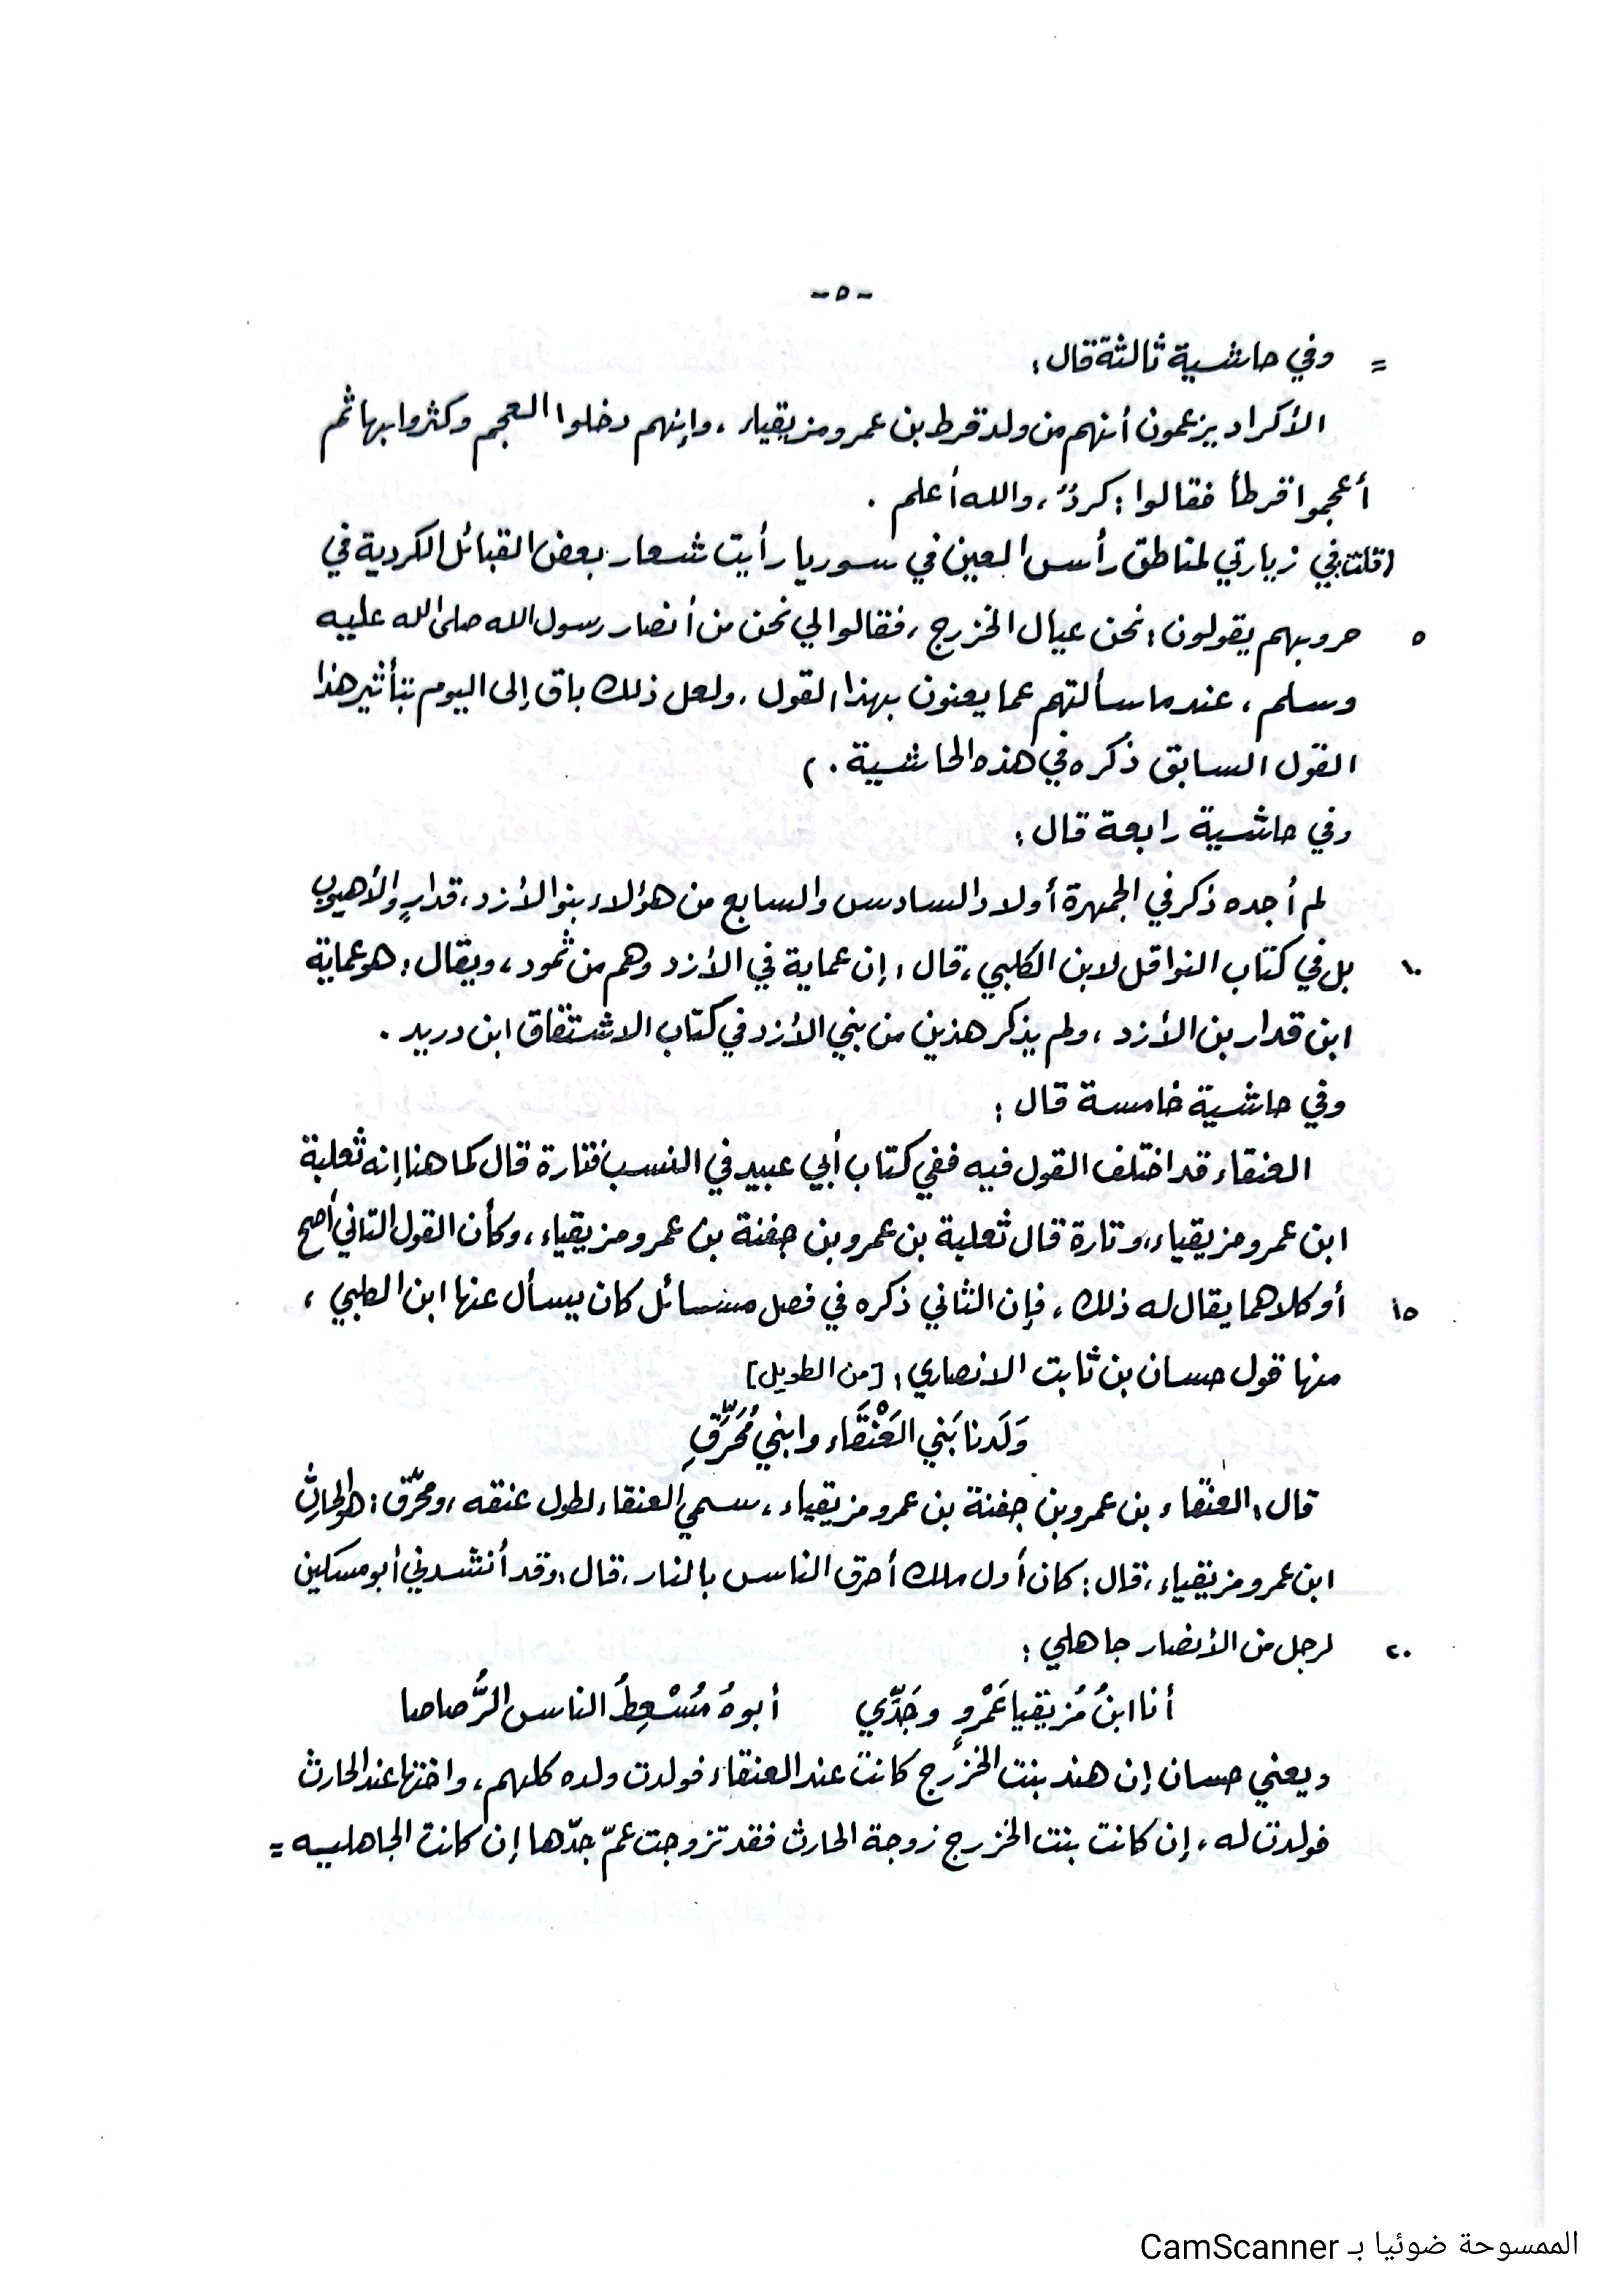 -٥-
= وفي حاشية ثالثة قال :
الأكراد يزعمون أنهم من ولد قرط بن عمرو مزيقياء ، وإنهم دخلوا العجم وكثروا بها ثم
أعجموا قرطأ فقالوا : كردٌ ، والله أعلم .
(قلت : في زيارتي لمناطق رأس العين في سوريا رأيت شعار بعض القبائل الكردية في
٥ حروبهم يقولون : نحن عيال الخزرج ، فقالوا لي نحن من أنصار رسول الله صلى الله عليه
وسلم ، عندما سألتهم عما يعنون بهذا القول . ولعل ذلك باق إلى اليوم بتأثير هذا
القول السابق ذكره في هذه الحاشية . )
وفي حاشية رابعة قال :
لم أجده ذكر في الجمهرة أولاد السادس والسابع من هؤلاء بنو الأزد ، قدار والأهيوب
١٠ بل في كتاب النواقل لابن الكلبي ، قال : إن عماية في الأزد وهم من ثمود ، ويقال : هو عماية
ابن قدار بن الأزد ، ولم يذكر هذين من بني الأزد في كتاب الاشتقاق ابن دريد .
وفي حاشية خامسة قال :
العنقاء قد اختلف القول فيه ففي كتاب أبي عبيد في النسب فتارة قال كما هنا إنه ثعلبة
ابن عمرو مزيقياء ، وتارة قال ثعلبة بن عمرو بن جفنة بن عمرو مزيقياء ، وكأن القول الثاني أصح
١٥ أو كلاهما يقال له ذلك ، فإن الثاني ذكره في فصل مسائل كان يسأل عنها ابن الطبي ،
منها قول حسان بن ثابت الانصاري : [من الطويل]
وَلَدنا بَني العَنْقَاء وابنيْ مُحَرِّقٍ
قال : العنقاء بن عمرو بن جفنة بن عمرو مزيقياء ، سمي العنقاء لطول عنقه ، ومحرّق : هو الحارث
ابن عمرو مزيقياء ، قال : كان أول ملك أحرق الناس بالنار ، قال : وقد أنشدني أبو مسكين
٢٠ لرجل من الأنصار جاهلي :
أنا ابنُ مُزيقيا عَمْروٍ وجَدِّي أبوهُ مُسْعِطُ الناس الرَّصاصا
ويعني حسان إن هند بنت الخزرج كانت عند العنقاء فولدت ولده كلهم ، واختها عند الحارث
فولدت له ، إن كانت بنت الخزرج زوجة الحارث فقد تزوجت عمّ جدّها إن كانت الجاهليه =
الممسوحة ضوئيا بـ CamScanner